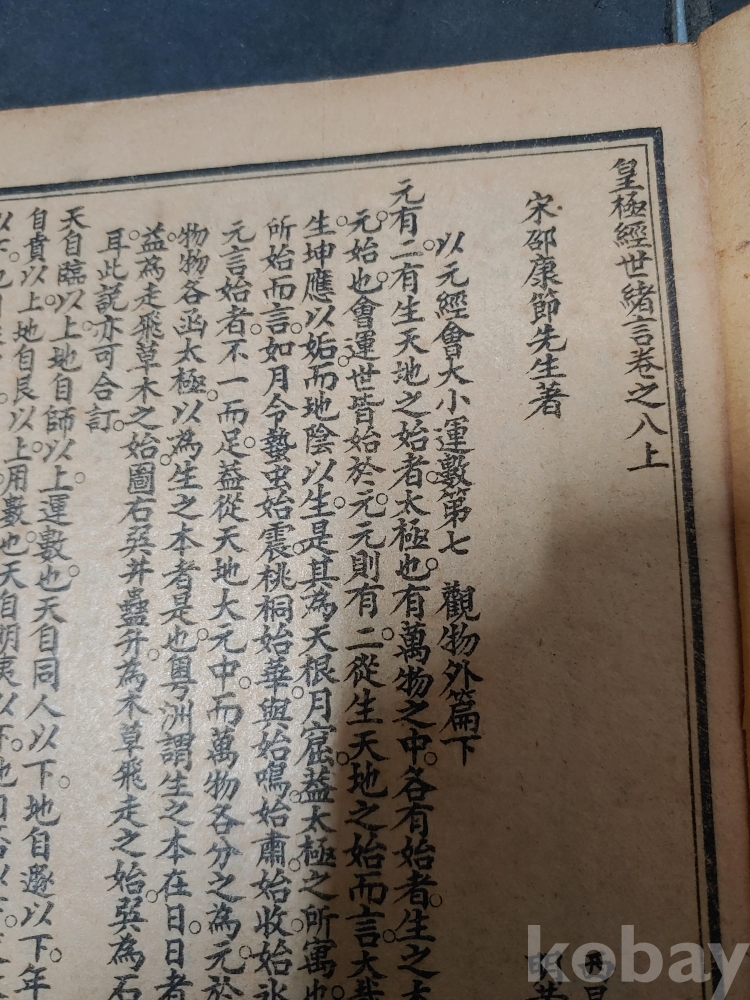 皇極經世緒言卷之八上
宋邵康節先生著
以元經會大小運數第七 觀物外篇下
元有二有生天地之始者太極也有萬物之中各有始者生之
元始也會運世皆始於元元則有二從生天地之始而言大哉
生坤應以姤而地陰以生是其為天根月窟益太極之所寓也
所始而言如月令蟄虫始震桃桐始華與始鳴始肅始收始氷
元言始者不一而足益從天地大元中而萬物各分之為元於
物物各函太極以為生之本者是也粵洲謂生之本在日日者
益為走飛草木之始圖右巽井蠱升為木草飛走之始巽為石
耳此説亦可合訂
天自臨以上地自師以上運數也天自同人以下地自遯以下年
自賁以上地自艮以上用數也天自明夷以下地
kobay